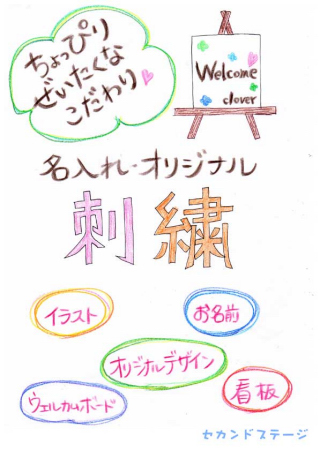 ちょっぴり
ぜいたくな
こだわり
Welcome
clover
名入れ・オリジナル
刺繍
イラスト
お名前
オリジナルデザイン
ウェルカムボード
看板
セカンドステージ